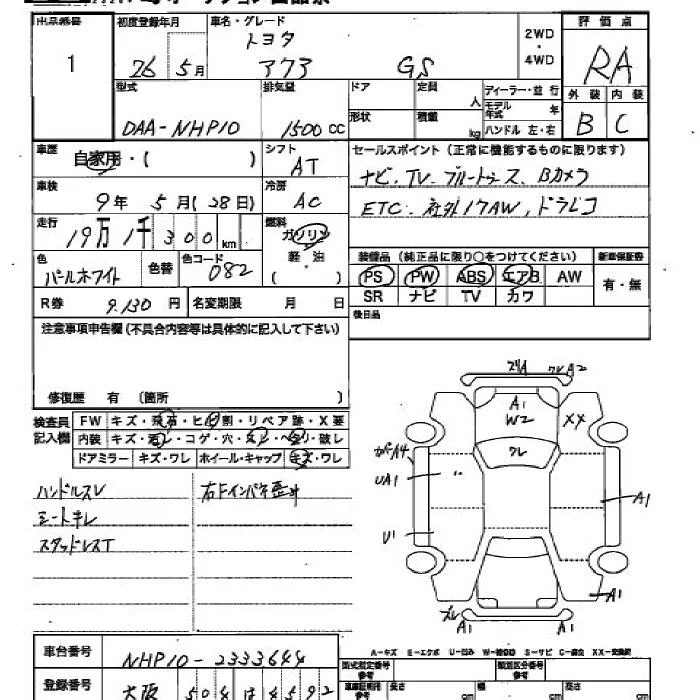 出品番号 初度登録年月 車名・グレード 評価点
1 26年 5月 トヨタ アクア GS 2WD・4WD RA
型式 排気量 ドア 定員 人 ディーラー・並行 外装 内装
DAA-NHP10 1500cc 形状 積載 kg モデル年式 年 ハンドル 左・右 B C
車歴 自家用・( ) シフト AT セールスポイント (正常に機能するものに限ります)
車検 9年 5月(28日) 冷房 AC ナビ、TV、ブルートゥース、Bカメラ
走行 19万1千300km 燃料 ガソリン 軽・油 ( ) ETC、社外17AW、ドラレコ
色 パールホワイト 色替 色コード 082 装備品 (純正品に限り○をつけてください) 新車保証書
PS PW ABS エアB AW 有・無
R券 9.130円 名変期限 月 日 SR ナビ TV カワ
注意事項申告欄(不具合内容等は具体的に記入して下さい) 後日品
修復歴 有 (箇所 )
検査員記入欄 FW キズ・飛石・ヒビ割・リペア跡・X要
内装 キズ・汚レ・コゲ・穴・スレ・ヘタリ・破レ
ドアミラー キズ・ワレ ホイール・キャップ キズ・ワレ
ハンドルスレ
シートキレ
スタッドレスT
A2
A1
W2
XX
A4
UA1
U1
A1
A1
A1
A1
A-キズ E-エクボ U-凹み W-補修跡 S-サビ C-腐食 XX-交換済
車台番号 NHP10-2333644 型式指定番号 類別区分番号
登録番号 大阪 504 は 4592 長さ cm 幅 cm 高さ cm